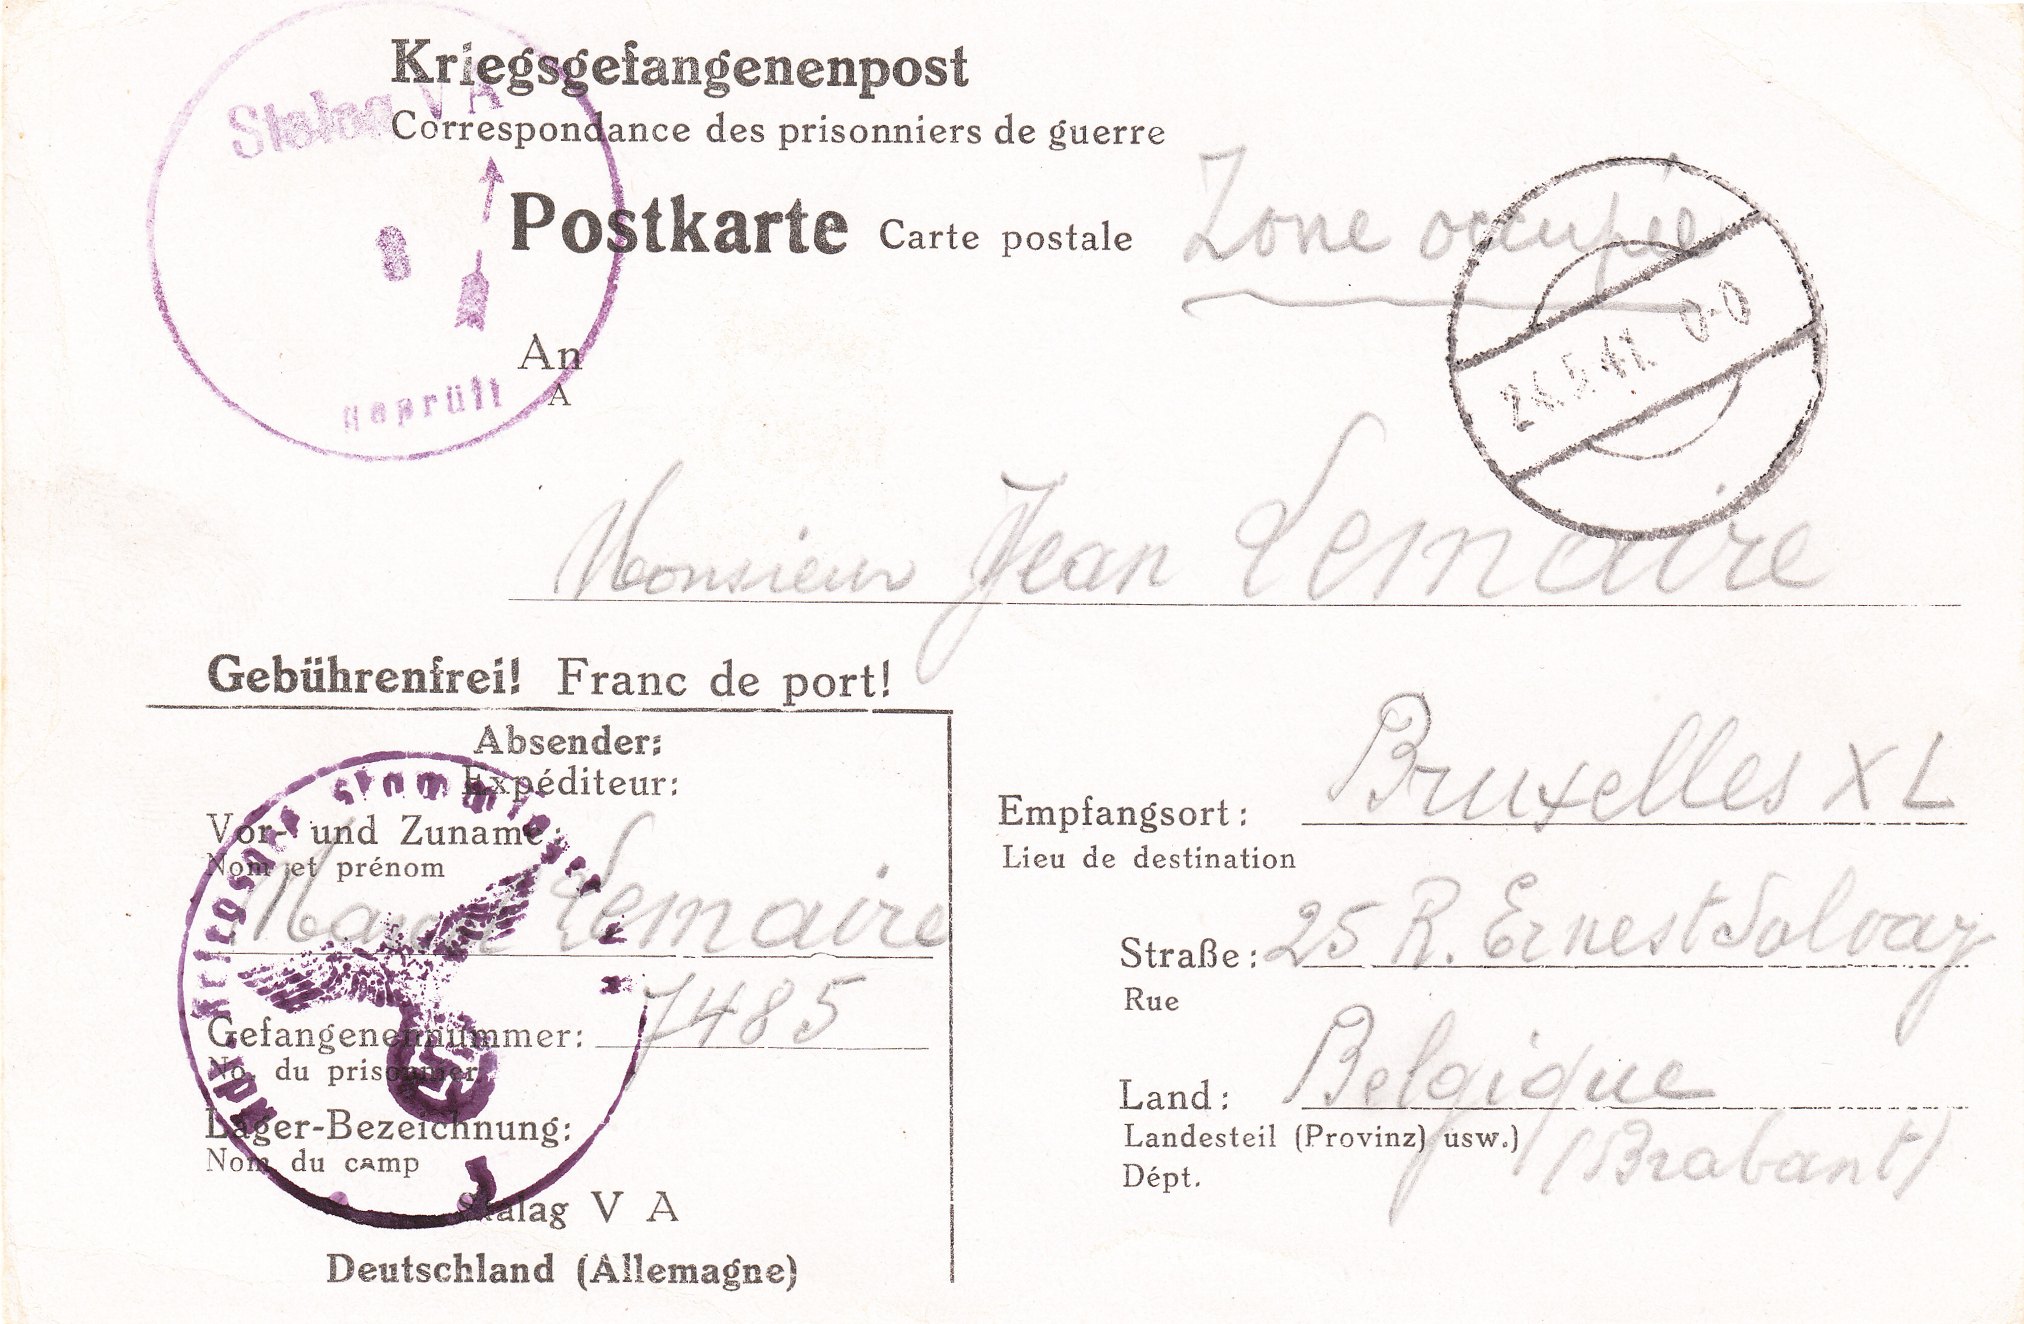 Kriegsgefangenenpost
Correspondance des prisonniers de guerre
Stalag V A
8
geprüft
Postkarte Carte postale
Zone occupée
An
A
5.41. 0-0
Monsieur Jean Lemaire
Gebührenfrei! Franc de port!
Absender:
Expéditeur:
Vor- und Zuname:
Nom et prénom
Marcel Lemaire
Gefangenennummer: 7485
No. du prisonnier
Lager-Bezeichnung:
Nom du camp
Stalag V A
Deutschland (Allemagne)
Empfangsort: Bruxelles XL
Lieu de destination
Straße: 25 R. Ernest Solvay
Rue
Land: Belgique
Landesteil (Provinz) usw.)
(Brabant)
Dépt.